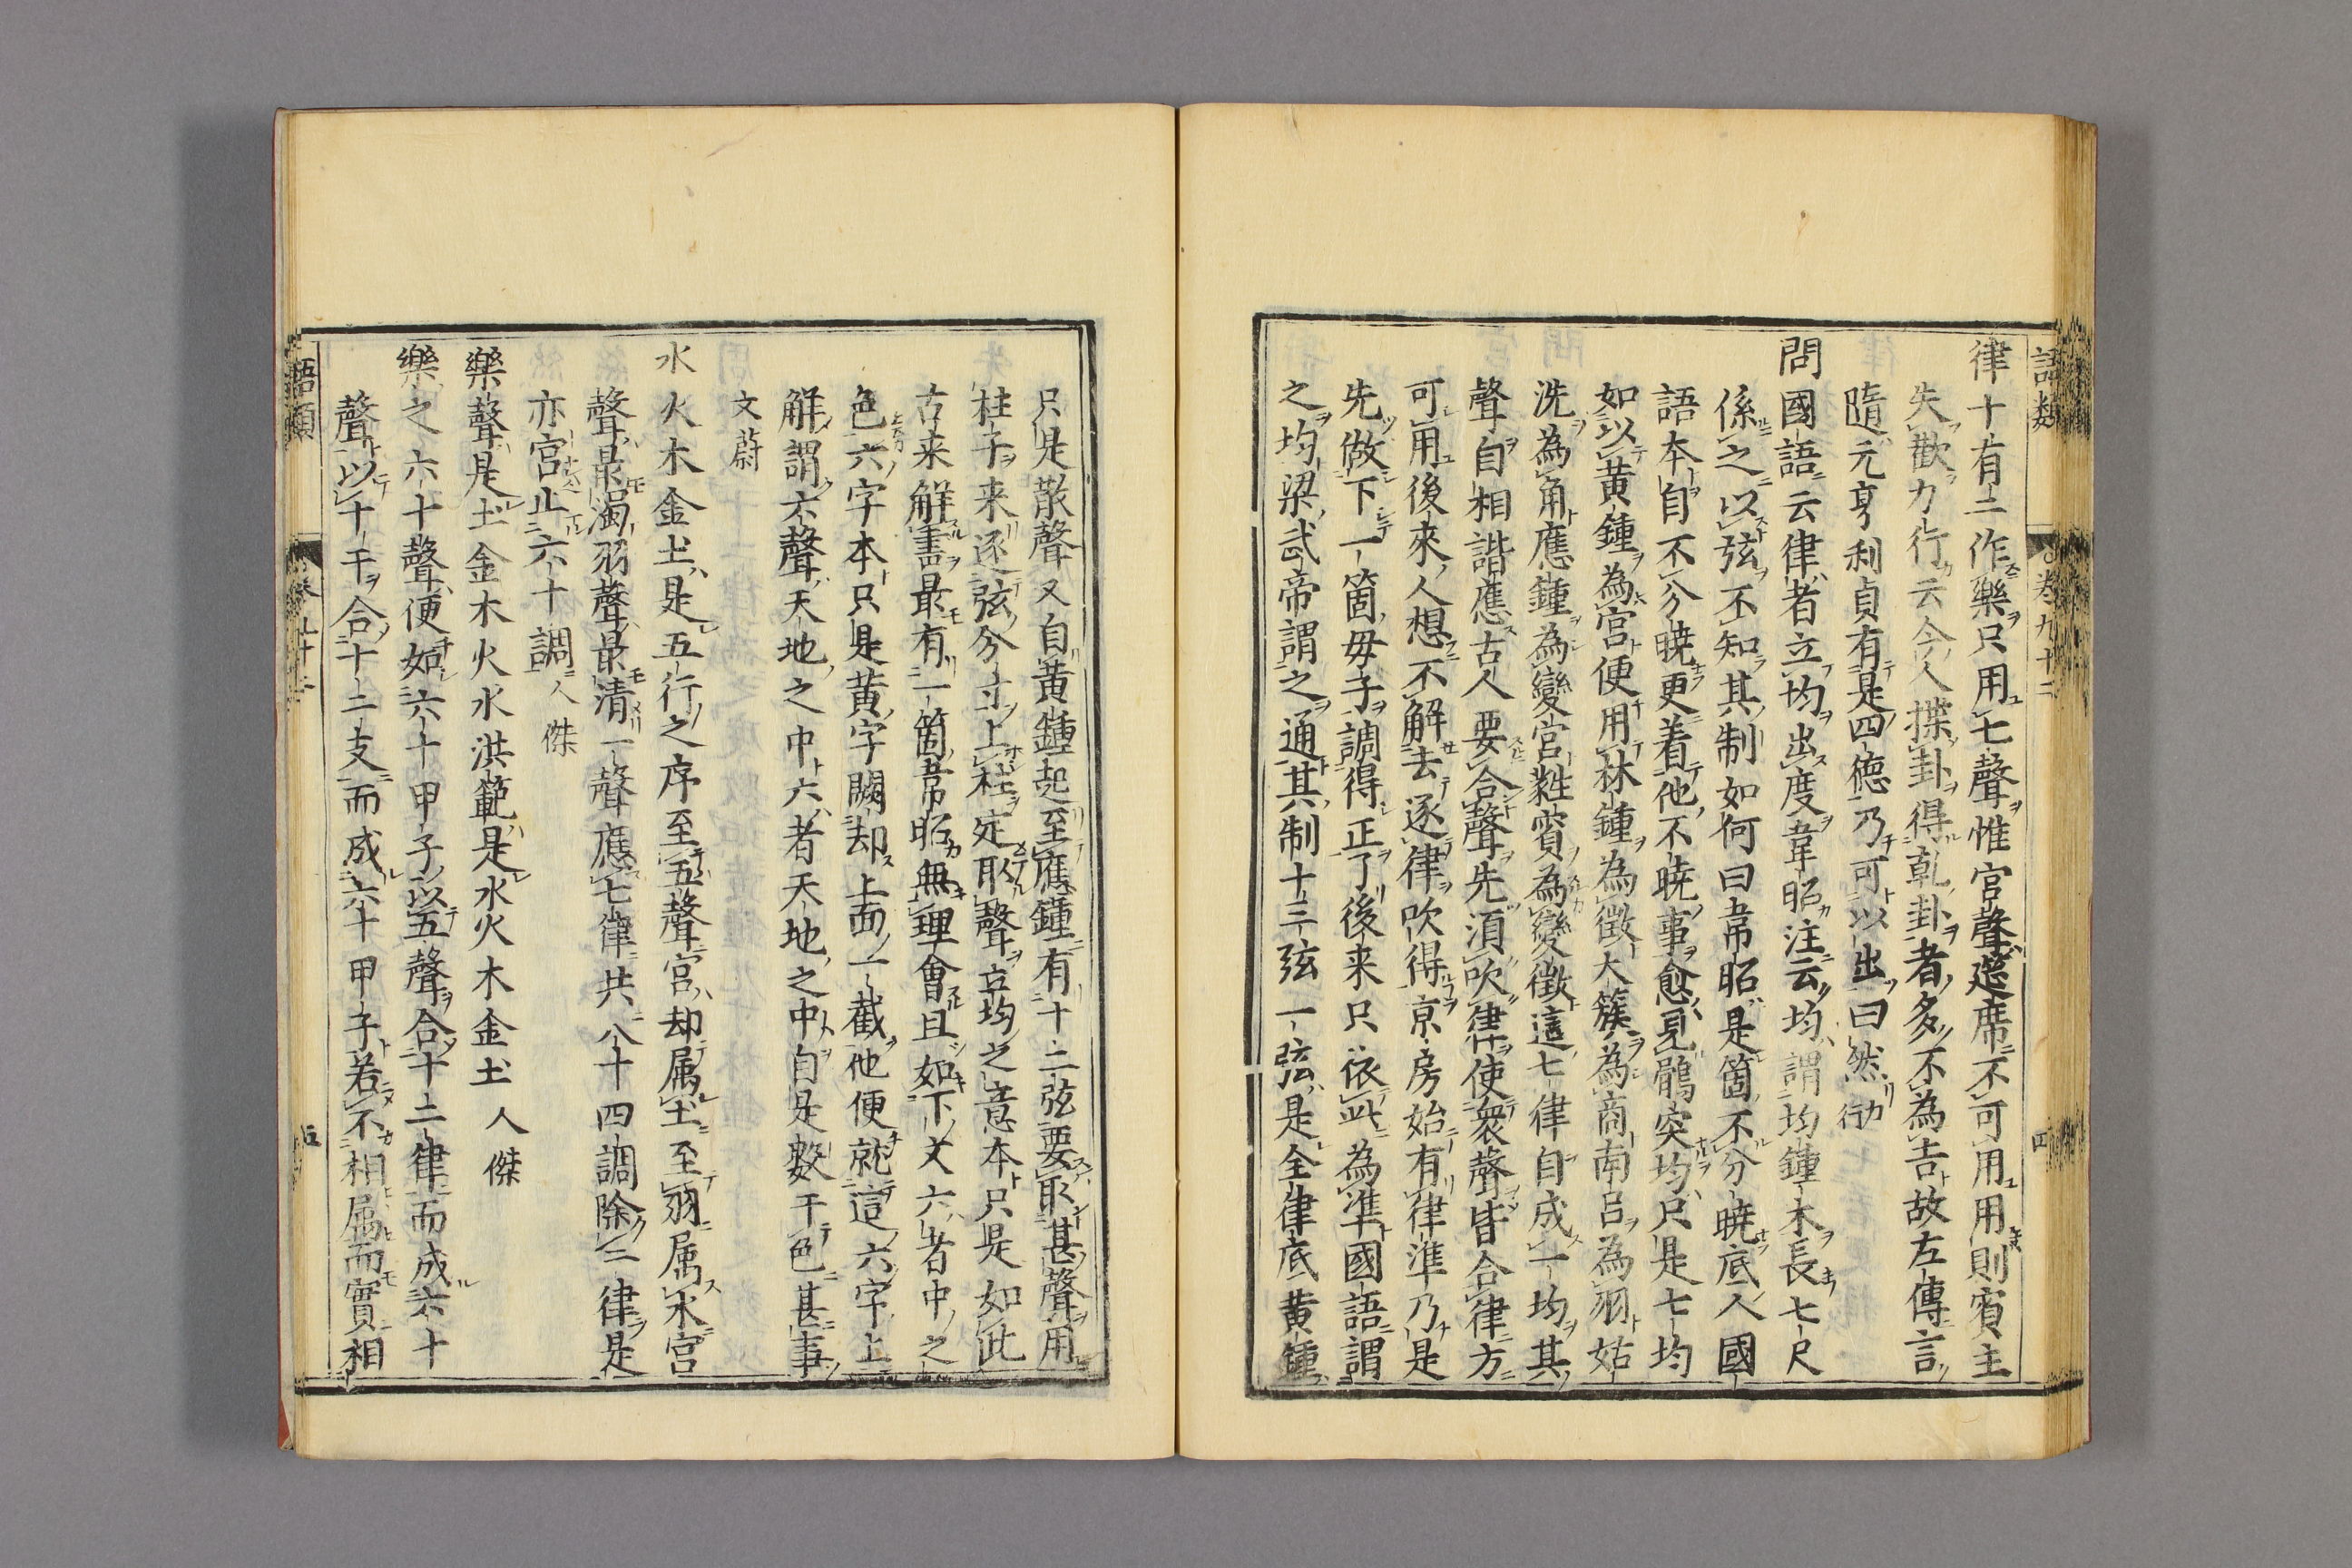 語類
卷九十二
四
律十有二作樂只用七聲惟宮聲筵席不可用用則賓主
失歡力行云今人揲卦得乾卦者多不為吉故左傳言
隨元亨利貞有是四徳乃可以出曰然力行
問國語云律者立均出度韋昭注云均謂均鍾木長七尺
係之以弦不知其制如何曰韋昭是箇不分曉底人國
語本自不分曉更着他不曉事愈見鶻突均只是七均
如以黄鍾為宮便用林鍾為徵大簇為商南呂為羽姑
洗為角應鍾為變宮蕤賓為變徵這七律自成一均其
聲自相諧應古人要合聲先須吹律使衆聲皆合律方
可用後來人想不解去逐律吹得京房始有律準乃是
先做下一箇毋子調得正了後来只依此為準國語謂
之均梁武帝謂之通其制十三弦一弦是全律底黄鍾
只是散聲又自黄鍾起至應鍾有十二弦要取甚聲用
柱子来逐弦分寸上柱定取聲立均之意本只是如此
古来解書最有一箇韋昭無理會且如下文六者中之
色六字本只是黄字闕却上面一截他便就這六字上
解謂六聲天地之中六者天地之中自是數干色甚事
文蔚
水火木金土是五行之序至五聲宮却属土至羽属水宮
聲最濁羽聲最清一聲應七律共八十四調除二律是
亦宮止六十調人傑
樂聲是土金木火水洪範是水火木金土 人傑
樂之六十聲便如六十甲子以五聲合十二律而成六十
聲以十干合十二支而成六十甲子若不相属而實相
語類
卷九十二
五